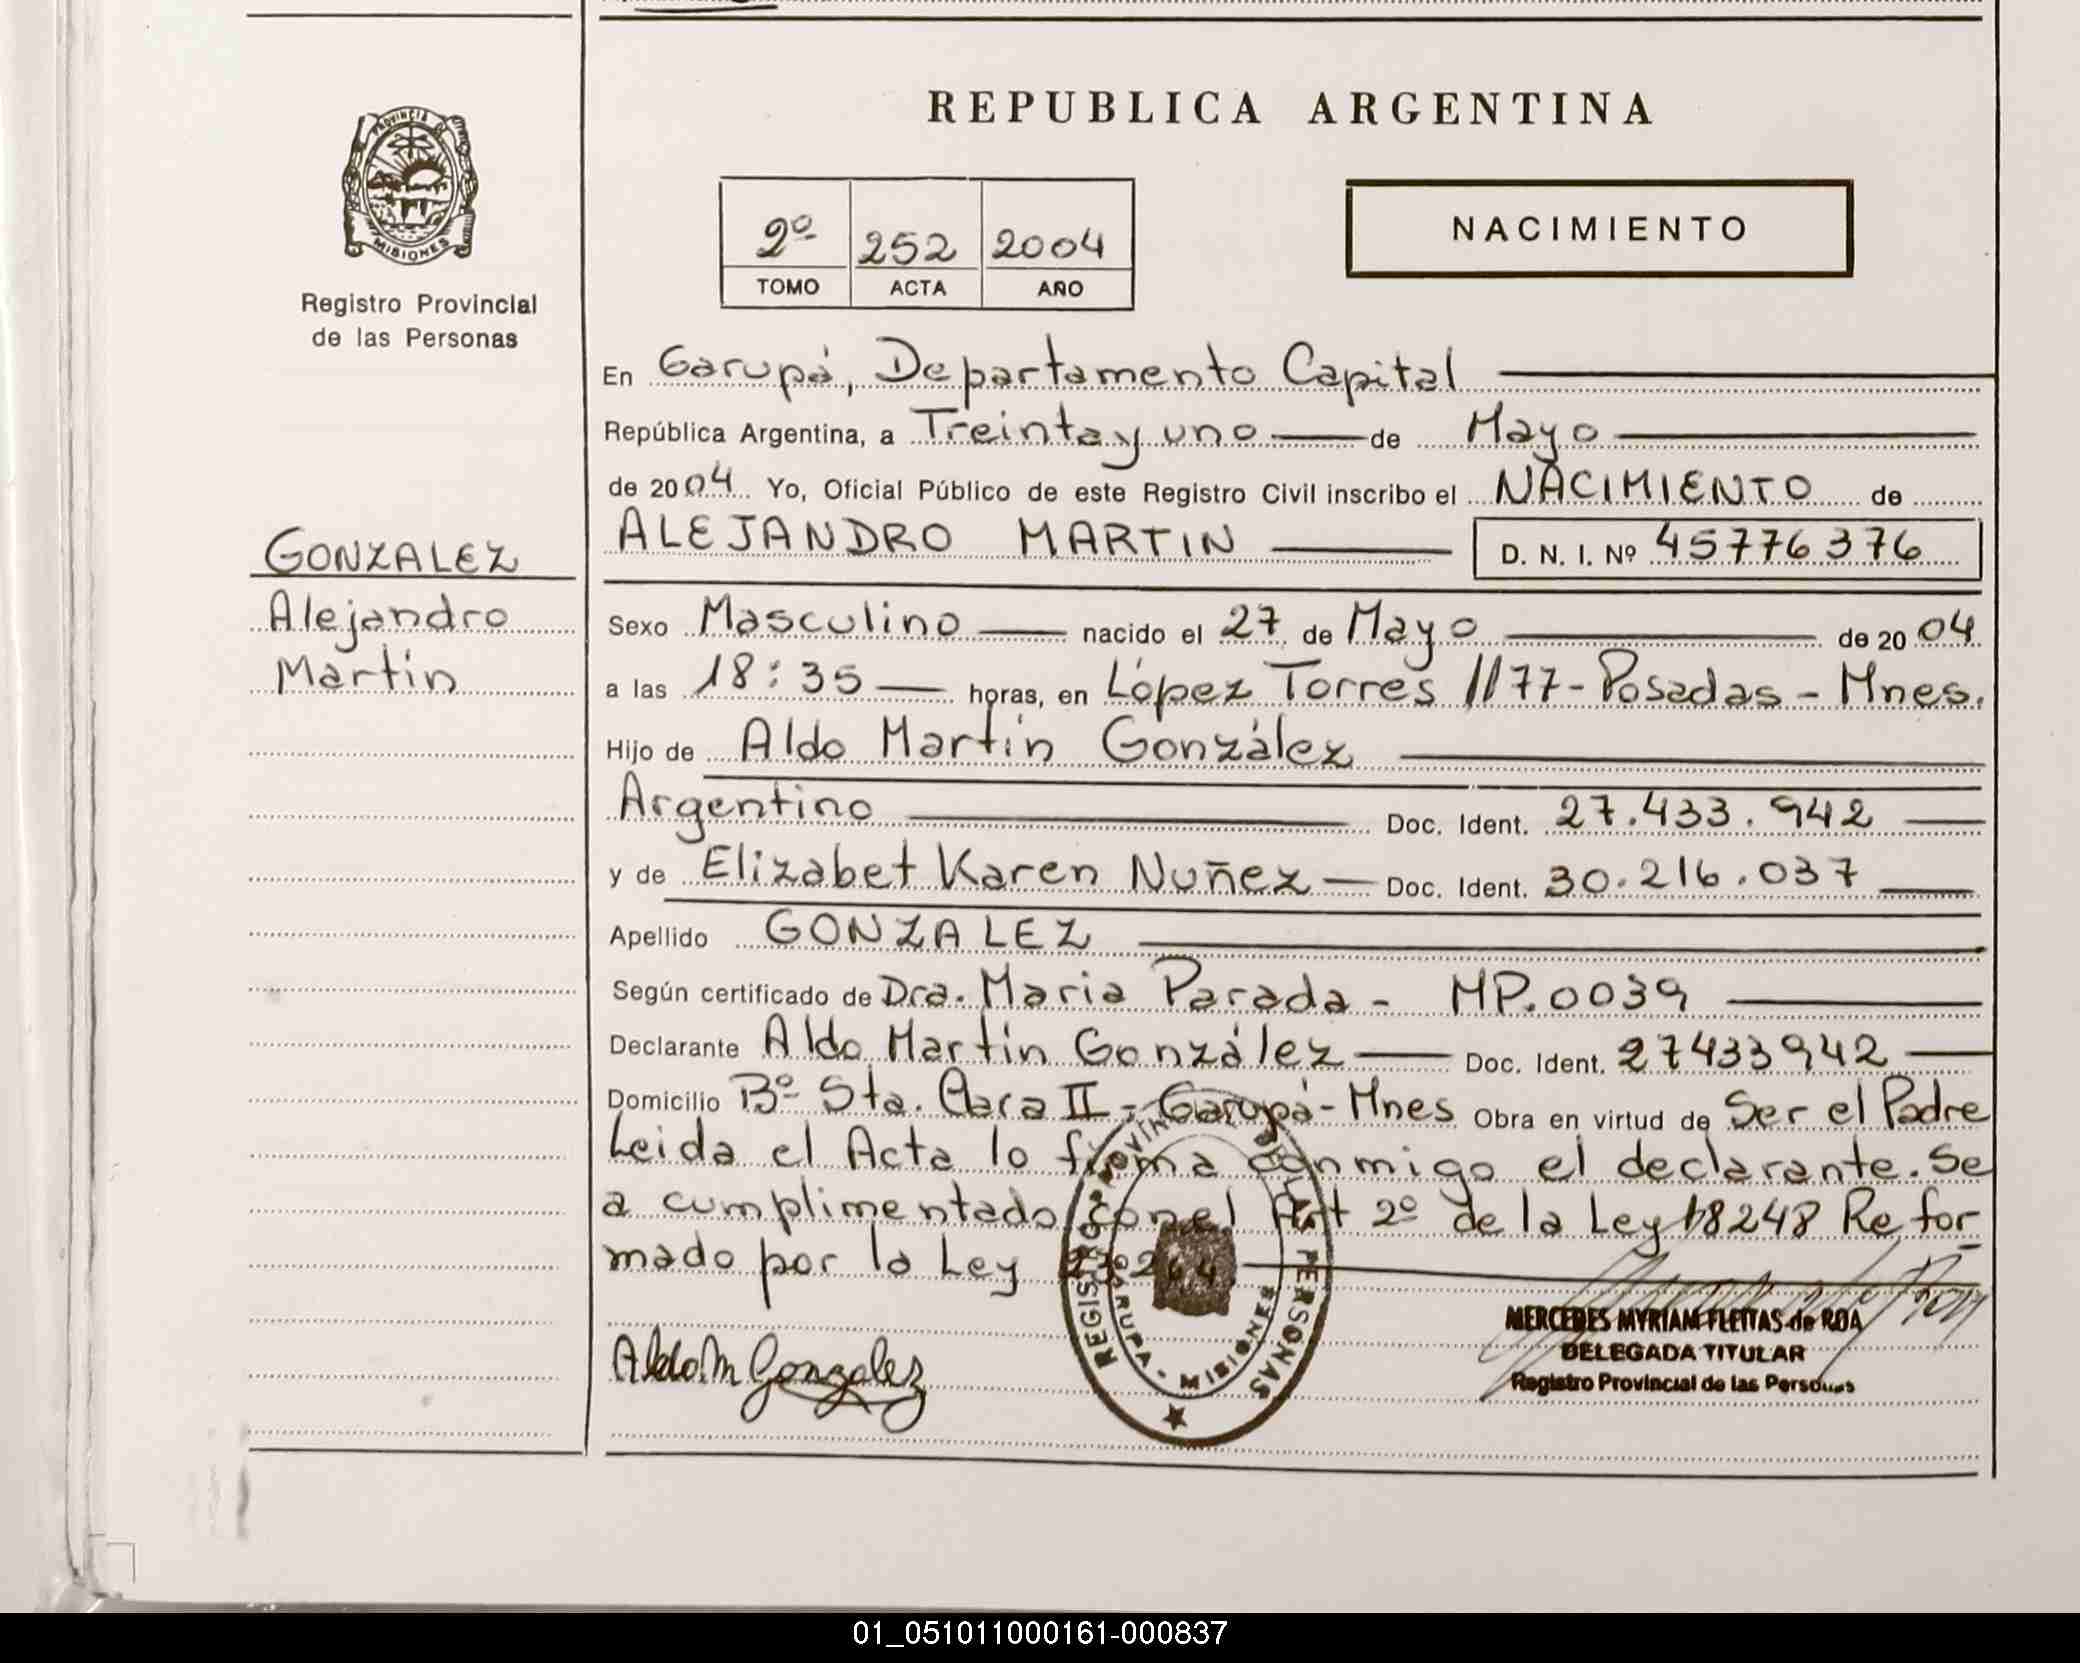 REPUBLICA ARGENTINA
PROVINCIA DE MISIONES
Registro Provincial
de las Personas
2º 252 2004
TOMO ACTA AÑO
NACIMIENTO
En Garupá, Departamento Capital
República Argentina, a Treinta y uno de Mayo
de 2004 Yo, Oficial Público de este Registro Civil inscribo el NACIMIENTO de
ALEJANDRO MARTIN D. N. I. Nº 45776376
GONZALEZ
Alejandro
Martín
Sexo Masculino nacido el 27 de Mayo de 2004
a las 18:35 horas, en López Torres 1177-Posadas - Mnes.
Hijo de Aldo Martín González
Argentino Doc. Ident. 27.433.942
y de Elizabet Karen Nuñez Doc. Ident. 30.216.037
Apellido GONZALEZ
Según certificado de Dra. Maria Parada - MP.0039
Declarante Aldo Martín González Doc. Ident. 27433942
Domicilio Bº Sta. Clara II - Garupá - Mnes Obra en virtud de Ser el Padre
Leida el Acta lo firma conmigo el declarante. Se
a cumplimentado con el Art 2º de la Ley 18248 Refor_
mado por la Ley
Aldo M Gonzalez
REGISTRO PROVINCIAL DE LAS PERSONAS
GARUPA - MISIONES
MERCEDES MYRIAM FLEITAS de ROA
DELEGADA TITULAR
Registro Provincial de las Personas
01_051011000161-000837